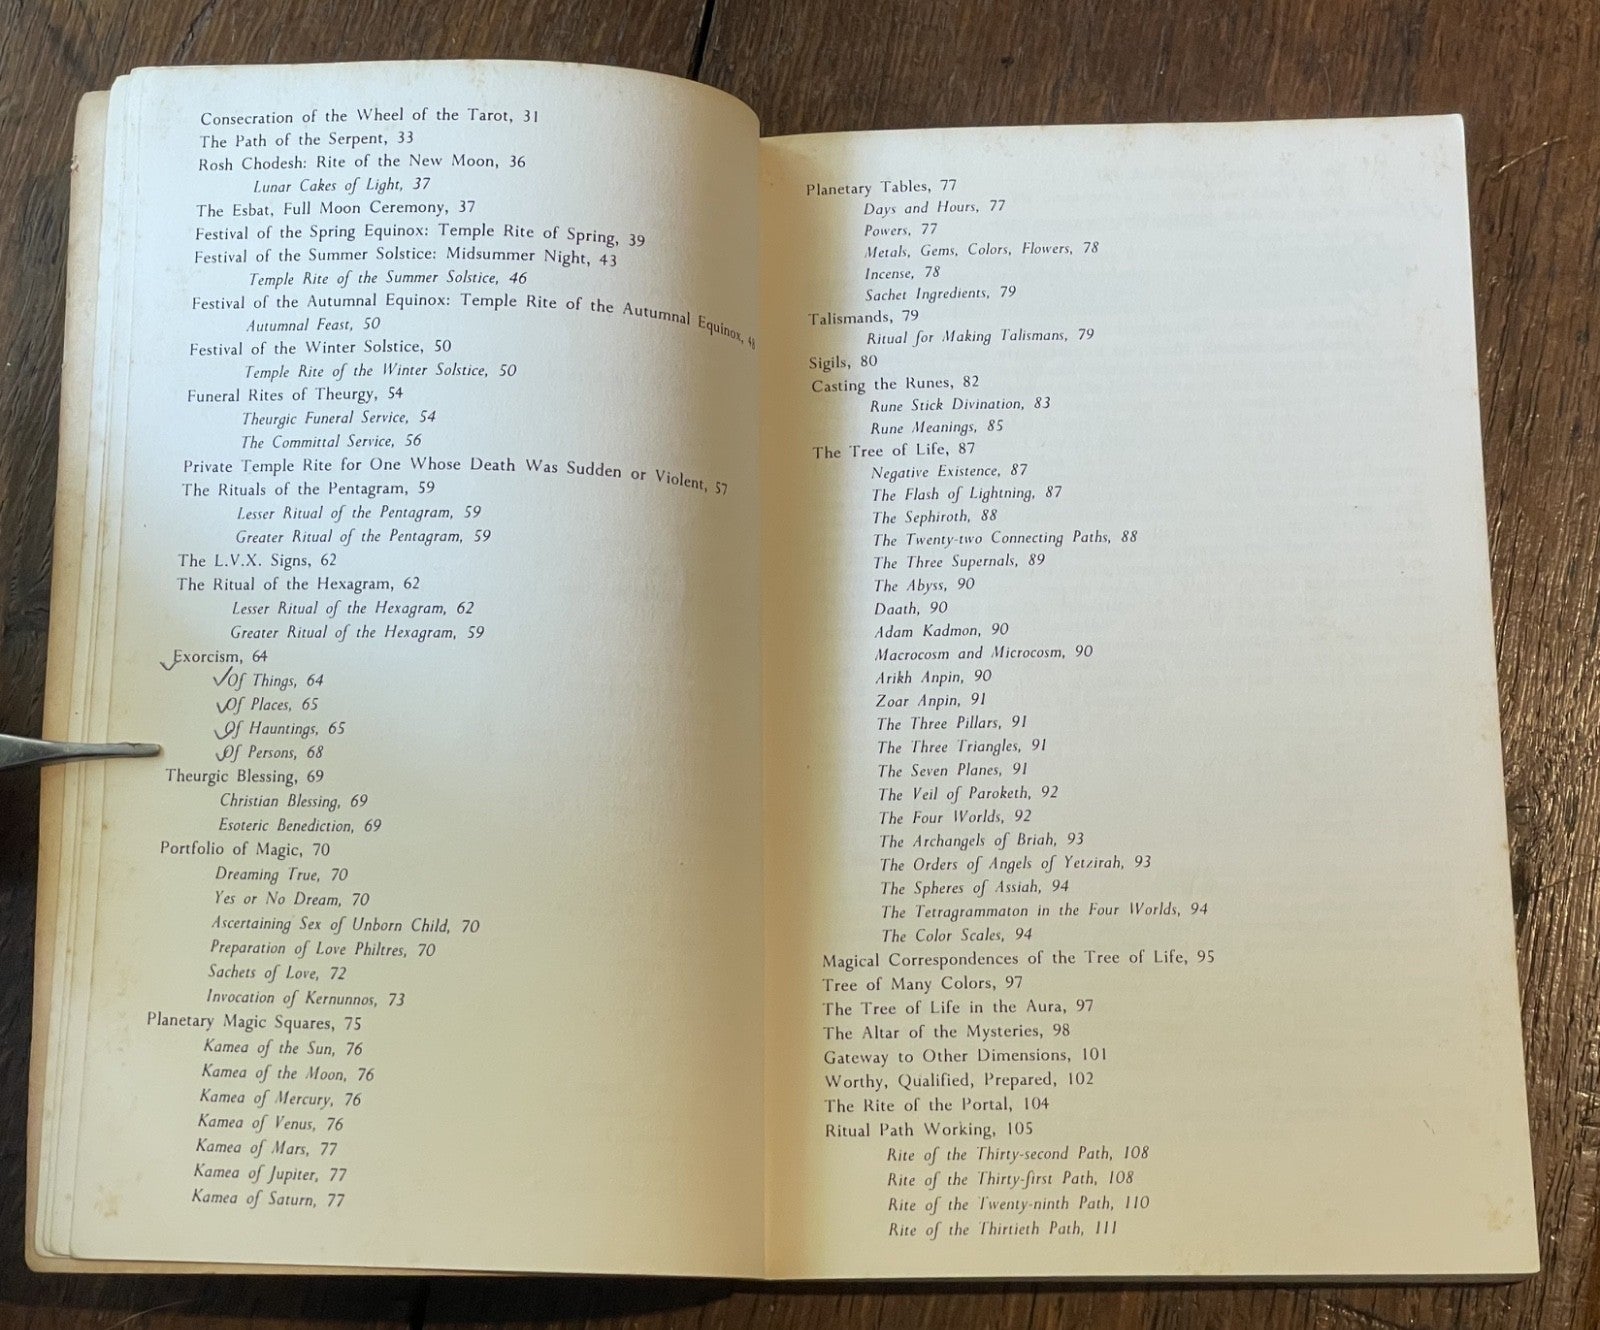 Consecration of the Wheel of the Tarot, 31
The Path of the Serpent, 33
Rosh Chodesh: Rite of the New Moon, 36
Lunar Cakes of Light, 37
The Esbat, Full Moon Ceremony, 37
Festival of the Spring Equinox: Temple Rite of Spring, 39
Festival of the Summer Solstice: Midsummer Night, 43
Temple Rite of the Summer Solstice, 46
Festival of the Autumnal Equinox: Temple Rite of the Autumnal Equinox, 48
Autumnal Feast, 50
Festival of the Winter Solstice, 50
Temple Rite of the Winter Solstice, 50
Funeral Rites of Theurgy, 54
Theurgic Funeral Service, 54
The Committal Service, 56
Private Temple Rite for One Whose Death Was Sudden or Violent, 57
The Rituals of the Pentagram, 59
Lesser Ritual of the Pentagram, 59
Greater Ritual of the Pentagram, 59
The L.V.X. Signs, 62
The Ritual of the Hexagram, 62
Lesser Ritual of the Hexagram, 62
Greater Ritual of the Hexagram, 59
Exorcism, 64
Of Things, 64
Of Places, 65
Of Hauntings, 65
Of Persons, 68
Theurgic Blessing, 69
Christian Blessing, 69
Esoteric Benediction, 69
Portfolio of Magic, 70
Dreaming True, 70
Yes or No Dream, 70
Ascertaining Sex of Unborn Child, 70
Preparation of Love Philtres, 70
Sachets of Love, 72
Invocation of Kernunnos, 73
Planetary Magic Squares, 75
Kamea of the Sun, 76
Kamea of the Moon, 76
Kamea of Mercury, 76
Kamea of Venus, 76
Kamea of Mars, 77
Kamea of Jupiter, 77
Kamea of Saturn, 77
Planetary Tables, 77
Days and Hours, 77
Powers, 77
Metals, Gems, Colors, Flowers, 78
Incense, 78
Sachet Ingredients, 79
Talismands, 79
Ritual for Making Talismans, 79
Sigils, 80
Casting the Runes, 82
Rune Stick Divination, 83
Rune Meanings, 85
The Tree of Life, 87
Negative Existence, 87
The Flash of Lightning, 87
The Sephiroth, 88
The Twenty-two Connecting Paths, 88
The Three Supernals, 89
The Abyss, 90
Daath, 90
Adam Kadmon, 90
Macrocosm and Microcosm, 90
Arikh Anpin, 90
Zoar Anpin, 91
The Three Pillars, 91
The Three Triangles, 91
The Seven Planes, 91
The Veil of Paroketh, 92
The Four Worlds, 92
The Archangels of Briah, 93
The Orders of Angels of Yetzirah, 93
The Spheres of Assiah, 94
The Tetragrammaton in the Four Worlds, 94
The Color Scales, 94
Magical Correspondences of the Tree of Life, 95
Tree of Many Colors, 97
The Tree of Life in the Aura, 97
The Altar of the Mysteries, 98
Gateway to Other Dimensions, 101
Worthy, Qualified, Prepared, 102
The Rite of the Portal, 104
Ritual Path Working, 105
Rite of the Thirty-second Path, 108
Rite of the Thirty-first Path, 108
Rite of the Twenty-ninth Path, 110
Rite of the Thirtieth Path, 111